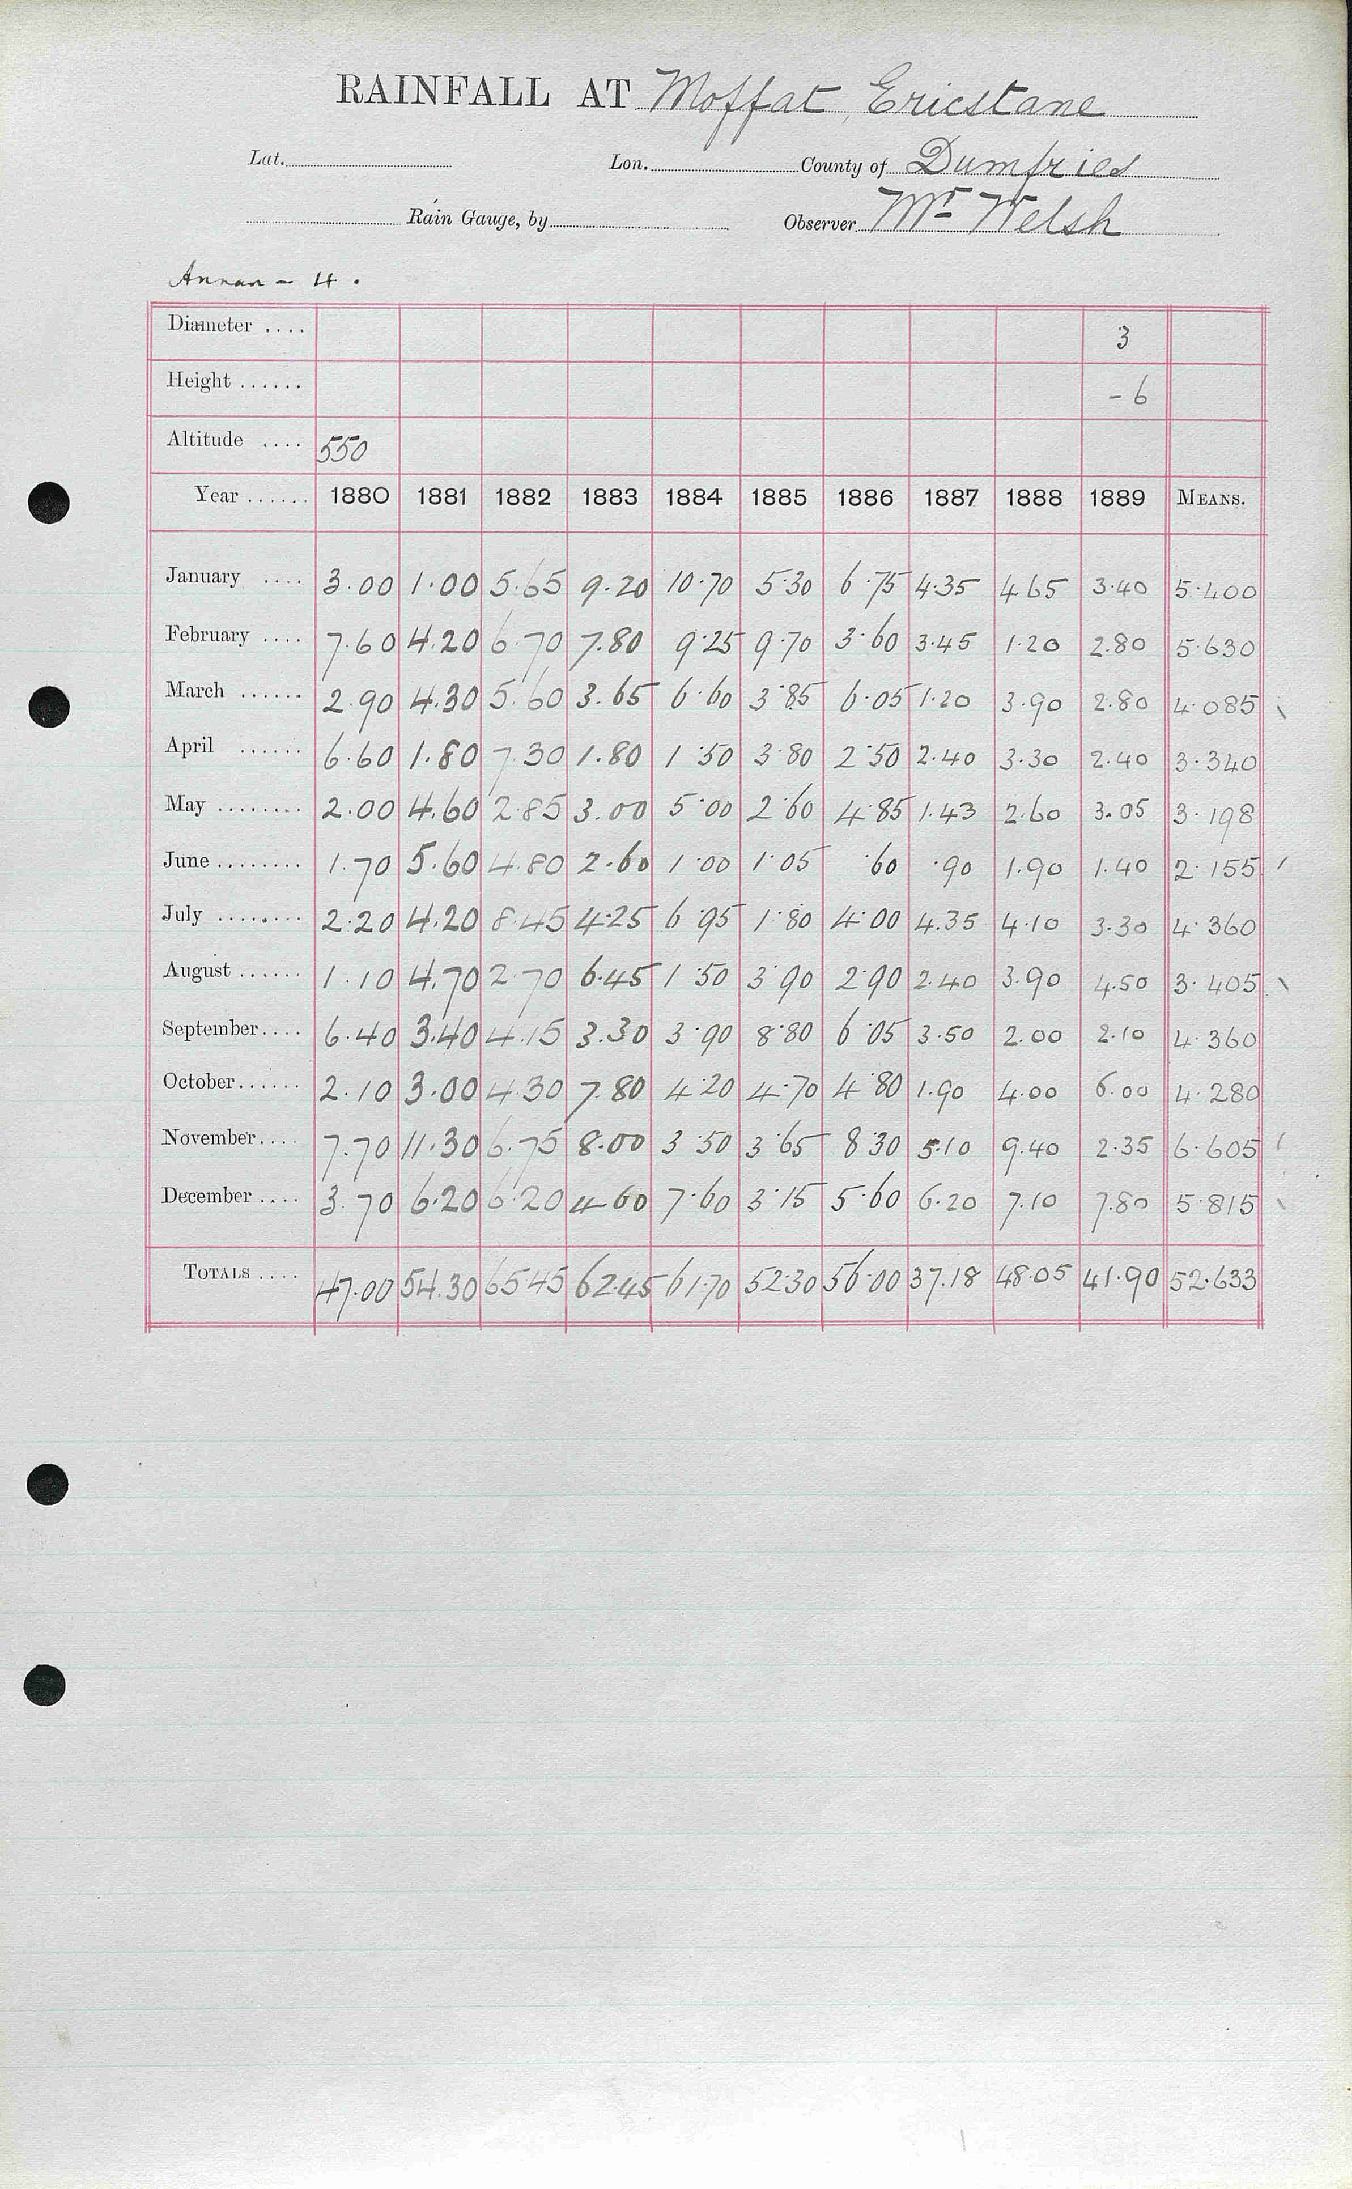 RAINFALL AT Moffat, Ericstane
Lat. Lon. County of Dumfries
Rain Gauge, by Observer Mr Welsh
Annan - 4.
Diameter .... 3
Height ...... -6
Altitude .... 550
Year ...... 1880 1881 1882 1883 1884 1885 1886 1887 1888 1889 MEANS.
January .... 3.00 1.00 5.65 9.20 10.70 5.30 6.75 4.35 4.65 3.40 5.400
February .... 7.60 4.20 6.70 7.80 9.25 9.70 3.60 3.45 1.20 2.80 5.630
March ...... 2.90 4.30 5.60 3.65 6.60 3.85 6.05 1.20 3.90 2.80 4.085
April ...... 6.60 1.80 7.30 1.80 1.50 3.80 2.50 2.40 3.30 2.40 3.340
May ........ 2.00 4.60 2.85 3.00 5.00 2.60 4.85 1.43 2.60 3.05 3.198
June ........ 1.70 5.60 4.80 2.60 1.00 1.05 .60 .90 1.90 1.40 2.155
July ........ 2.20 4.20 8.45 4.25 6.95 1.80 4.00 4.35 4.10 3.30 4.360
August ...... 1.10 4.70 2.70 6.45 1.50 3.90 2.90 2.40 3.90 4.50 3.405
September.... 6.40 3.40 4.15 3.30 3.90 8.80 6.05 3.50 2.00 2.10 4.360
October...... 2.10 3.00 4.30 7.80 4.20 4.70 4.80 1.90 4.00 6.00 4.280
November.... 7.70 11.30 6.75 8.00 3.50 3.65 8.30 5.10 9.40 2.35 6.605
December .... 3.70 6.20 6.20 4.60 7.60 3.15 5.60 6.20 7.10 7.80 5.815
TOTALS .... 47.00 54.30 65.45 62.45 61.70 52.30 56.00 37.18 48.05 41.90 52.633